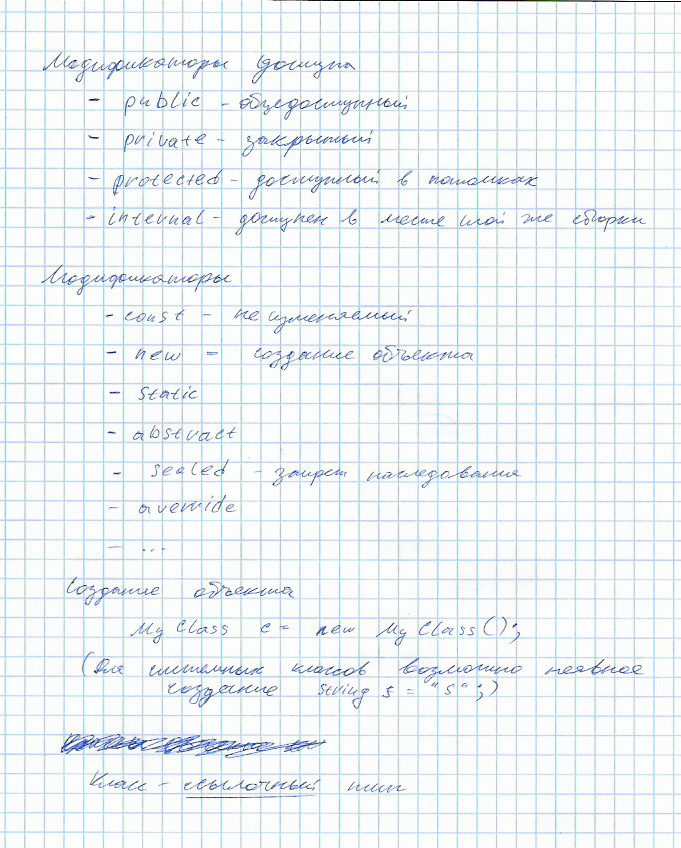 Модификаторы доступа
- public - общедоступный
- private - закрытый
- protected - доступный в потомках
- internal - доступен в месте той же сборки
Модификаторы
- const - не изменяемый
- new = создание объекта
- static
- abstract
- sealed - запрет наследования
- override
- ...
Создание объекта
MyClass c = new MyClass();
(Для системных классов возможно неявное
создание string s = "s";)
Класс - ссылочный тип